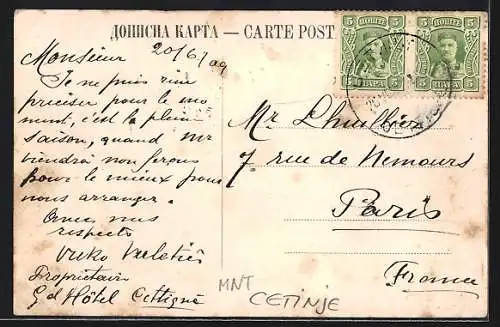 ДОПИСНА КАРТА — CARTE POST
20/6/09
Monsieur
Je ne puis rien
preciser pour le mo
ment, c'est la pleine
saison, quand vs
viendrez nous ferons
pour le mieux pour
nous arranger.
Avec mes
respects
Vuko Vuletić
Propriétaire
Gd Hôtel Cettigné
5 ПОШТЕ 5
5 ПАРА 5
5 ПОШТЕ 5
5 ПАРА 5
Mr Lhuillier
7 rue de Nemours
Paris
France
MNT
CETINJE